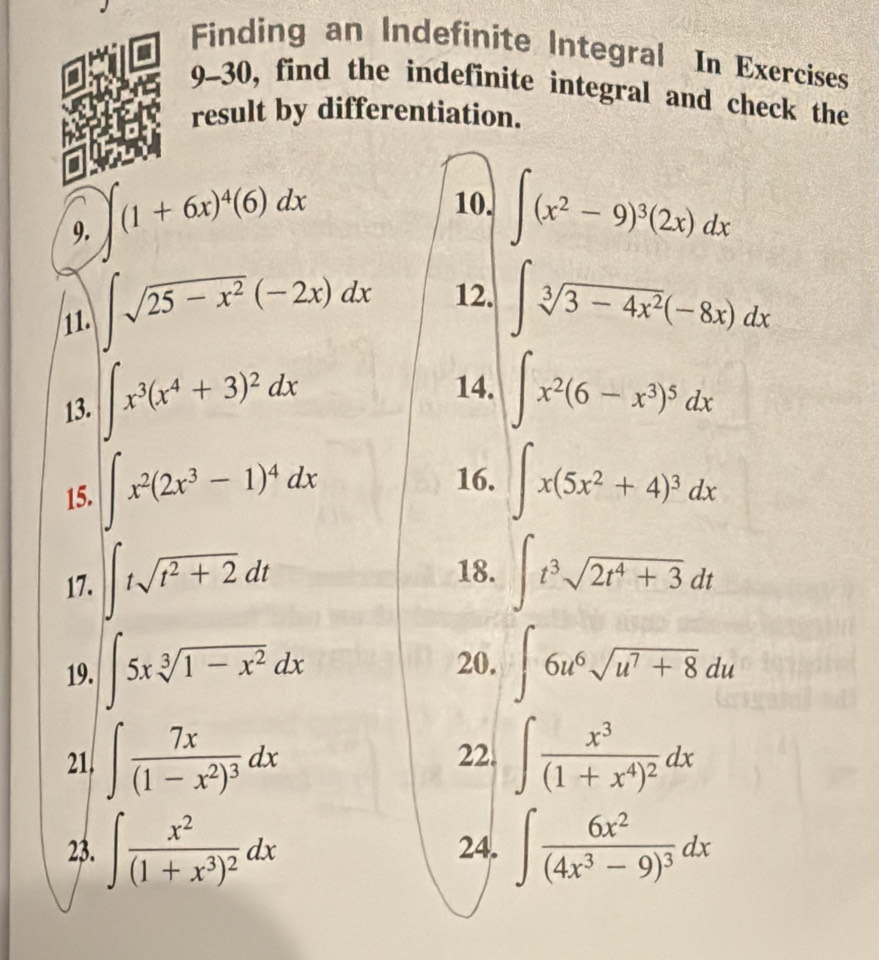 Finding an Indefinite Integral In Exercises
9–30, find the indefinite integral and check the
result by differentiation.
9. ∫(1 + 6x)⁴(6) dx
10. ∫(x² − 9)³(2x) dx
11. ∫√(25 − x²) (−2x) dx
12. ∫∛(3 − 4x²)(−8x) dx
13. ∫x³(x⁴ + 3)² dx
14. ∫x²(6 − x³)⁵ dx
15. ∫x²(2x³ − 1)⁴ dx
16. ∫x(5x² + 4)³ dx
17. ∫t√(t² + 2) dt
18. ∫t³√(2t⁴ + 3) dt
19. ∫5x∛(1 − x²) dx
20. ∫6u⁶√(u⁷ + 8) du
21. ∫7x/(1 − x²)³ dx
22. ∫x³/(1 + x⁴)² dx
23. ∫x²/(1 + x³)² dx
24. ∫6x²/(4x³ − 9)³ dx